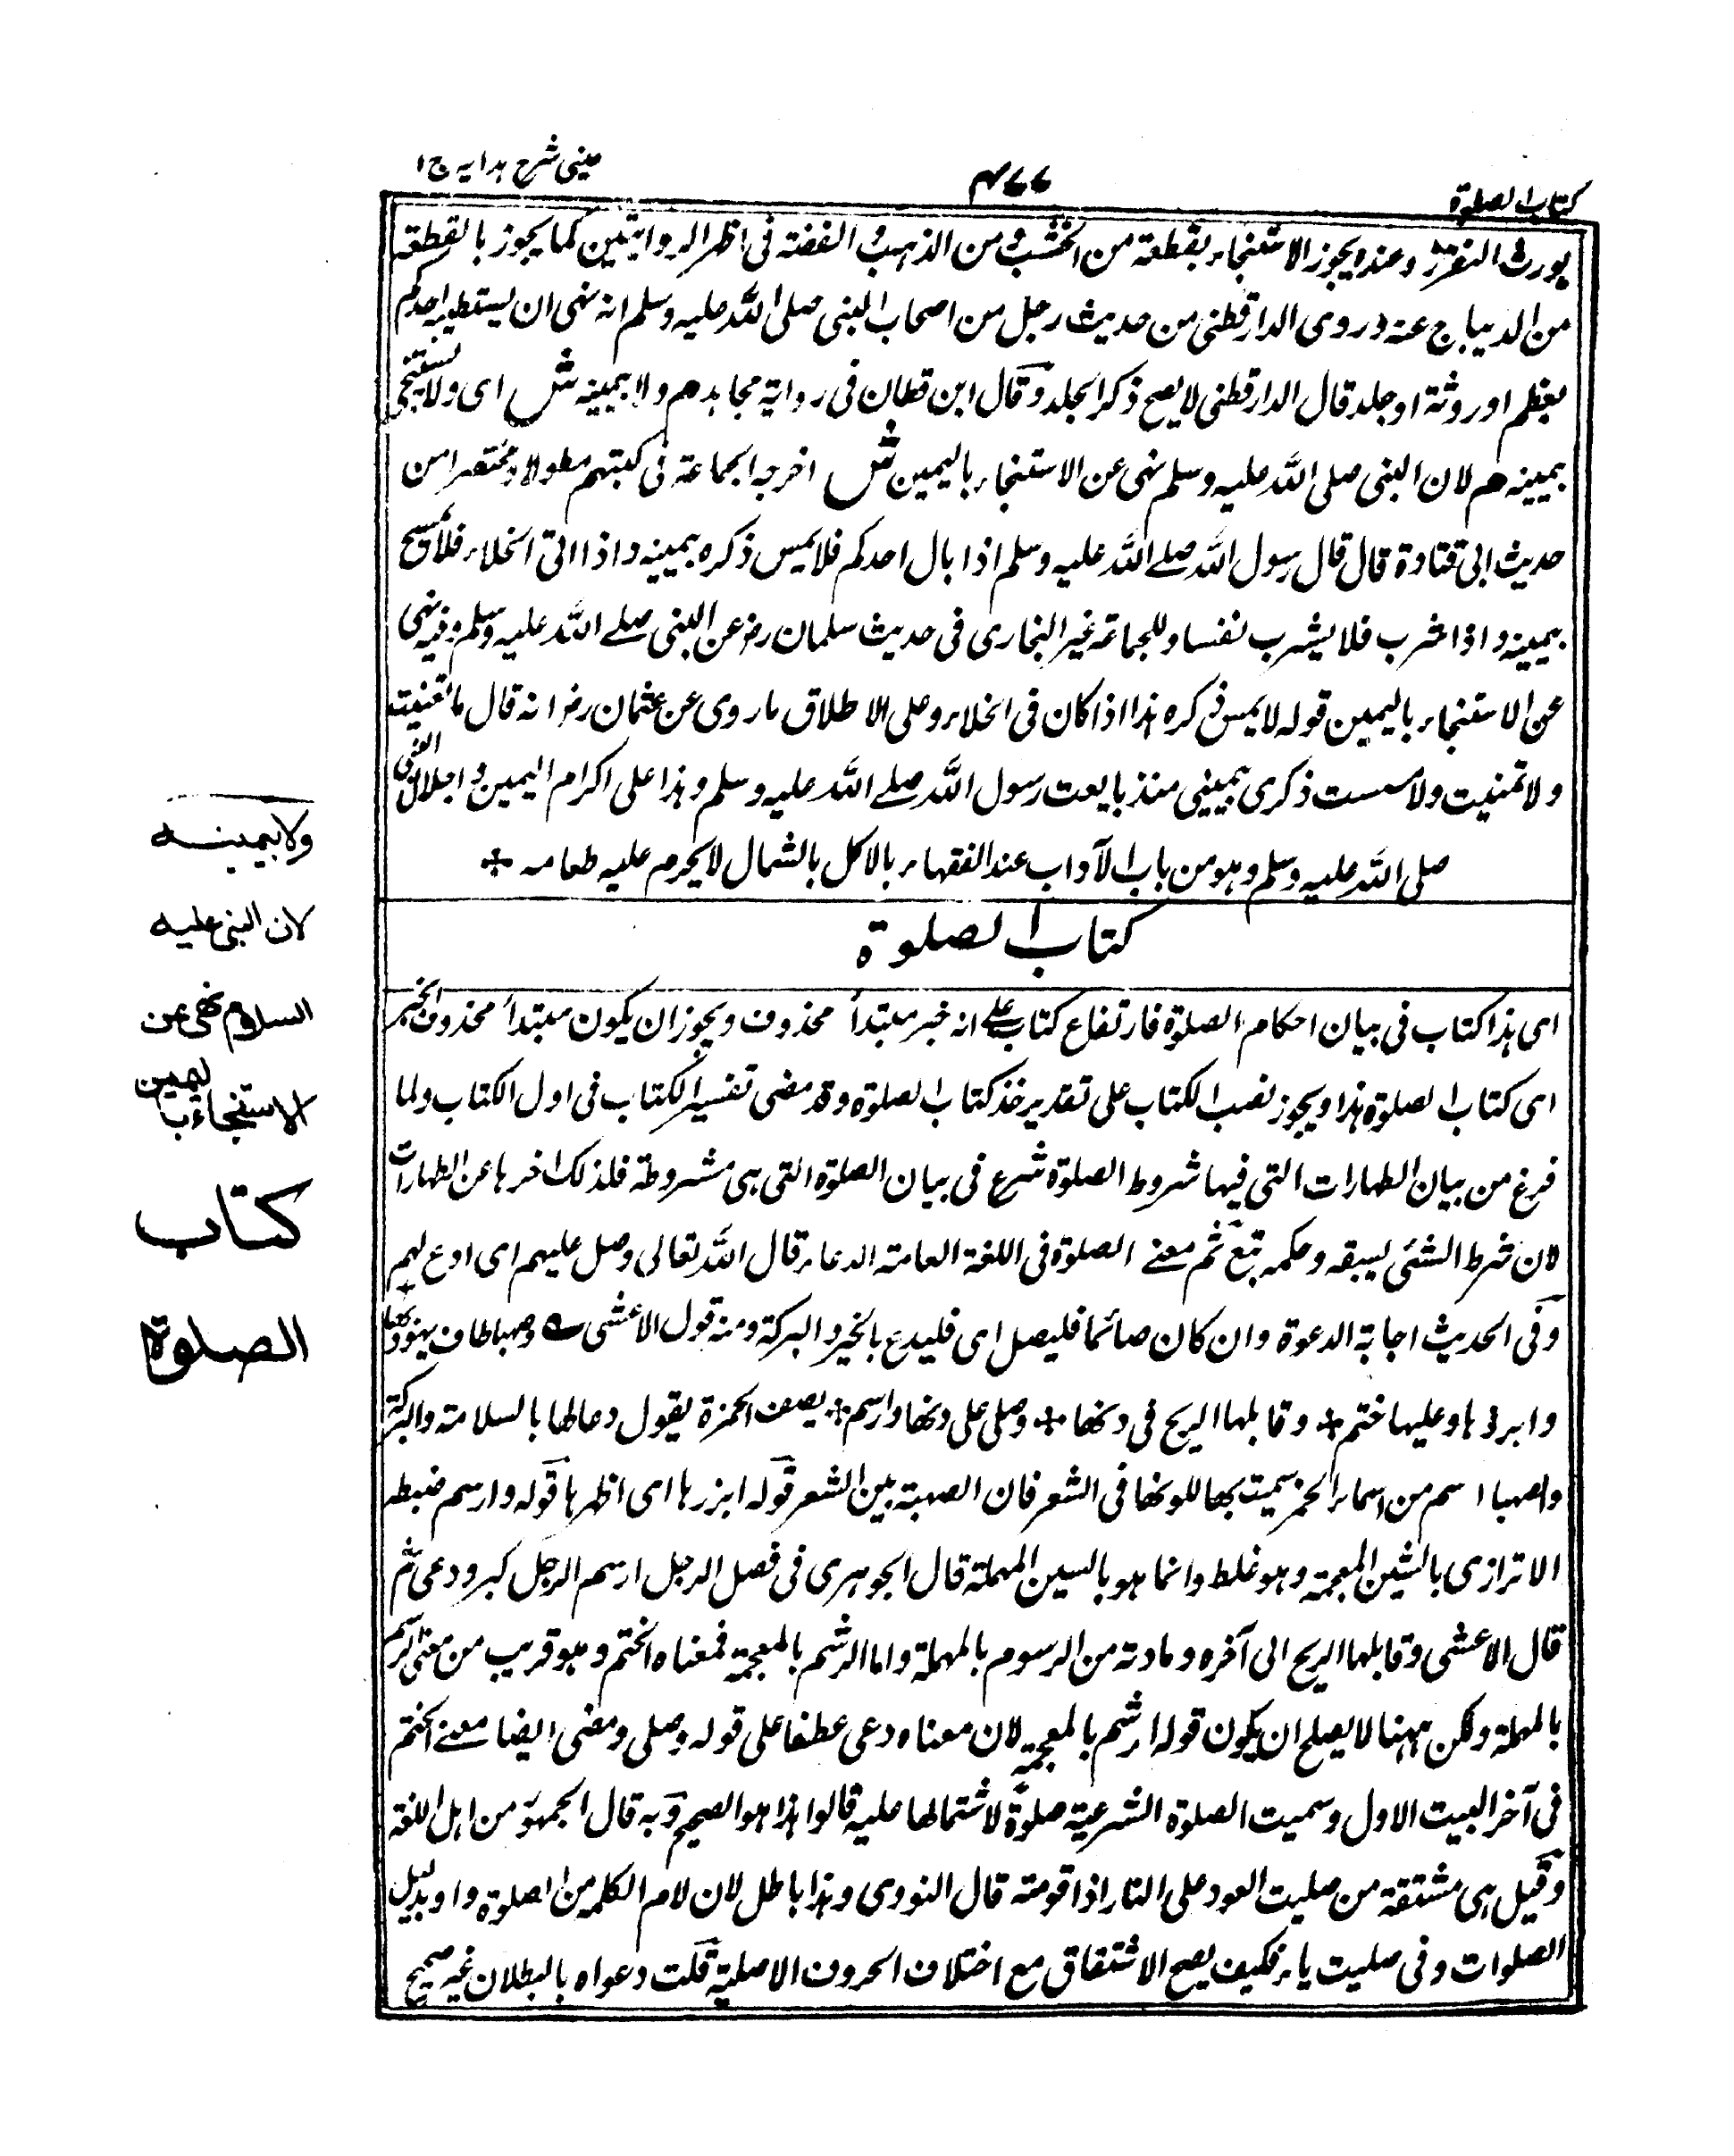 كتاب الصلوة
٤٧٧
عينى شرح هدايه ج ١
يورث الفقر وعنده يجوز الاستنجاء بقطعة من الخشب و من الذهب و الفضة فى اظهر الروايتين كما يجوز بالقطعة
من الديباج عنده روى الدارقطنى من حديث رجل من اصحاب النبى صلى الله عليه وسلم انه نهى ان يستطيب احدكم
بعظم او روثة او جلد قال الدارقطنى لا يصح ذكر الجلد وقال ابن قطان فى رواية مجاهد م ولا بيمينه ش اى ولا يستنجى
بيمينه م لان النبى صلى الله عليه وسلم نهى عن الاستنجاء باليمين ش اخرجه الجماعة فى كتبهم مطولا ومختصرا من
حديث ابى قتادة قال قال رسول الله صلے الله عليه وسلم اذا بال احدكم فلا يمس ذكره بيمينه واذا اتى الخلاء فلا يتمسح
بيمينه واذا شرب فلا يشرب نفسا وللجماعة غير البخارى فى حديث سلمان رض عن النبى صلے الله عليه وسلم وفيه نهى
عن الاستنجاء باليمين قوله لا يمس ذكره هذا اذا كان فى الخلاء وعلى الاطلاق ما روى عن عثمان رض انه قال ما تغنيت
ولا تمنيت ولا مسست ذكرى بيمينى منذ بايعت رسول الله صلے الله عليه وسلم وهذا على اكرام اليمين و اجلال النبى
صلى الله عليه وسلم وهو من باب الآداب عند الفقهاء بالاكل بالشمال لا يحرم عليه طعامه
كتاب الصلوة
اى هذا كتاب فى بيان احكام الصلوة فارتفاع كتاب على انه خبر مبتدأ محذوف ويجوز ان يكون مبتدأ محذوف الخبر
اى كتاب الصلوة هذا ويجوز نصب الكتاب على تقدير خذ كتاب الصلوة وقد مضى تفسير الكتاب فى اول الكتاب ولما
فرغ من بيان الطهارات التى فيها شروط الصلوة شرع فى بيان الصلوة التى هى مشروطة فلذلك اخرها عن الطهارات
لان شرط الشئ يسبقه وحكمه تبع ثم معنے الصلوة فى اللغة العامة الدعاء قال الله تعالى وصل عليهم اى ادع لهم
وفى الحديث اجابة الدعوة وان كان صائما فليصل اى فليدع بالخير والبركة ومنه قول الاعشى وصهبا طاف يهوديها
وابرزها وعليها ختم وقابلها الريح فى دنها وصلى على دنها وارسم يصف الخمرة يقول دعا لها بالسلامة والبركة
والصهبا اسم من اسماء الخمر سميت بها للونها فى الشعر فان الصهبة بين الشعر قوله ابرزها اى اظهرها قوله وارسم ضبطه
الاترازى بالشين المعجمة وهو غلط وانما هو بالسين المهملة قال الجوهرى فى فصل الرجل ارسم الرجل كبر ودعى ثم
قال الاعشى وقابلها الريح الى آخره ومادته من الرسوم بالمهملة واما الرشم بالمعجمة فمعناه الختم وهو قريب من معنى الرسم
بالمهملة ولكن ههنا لا يصلح ان يكون قوله ارشم بالمعجمة لان معناه دعى عطفا على قوله وصلى ومضى ايضا معنے الختم
فى آخر البيت الاول وسميت الصلوة الشرعية صلوة لاشتمالها عليه قالوا هذا هو الصحيح وبه قال الجمهور من اهل اللغة
وقيل هى مشتقة من صليت العود على النار اذا قومته قال النووى وهذا باطل لان لام الكلمة من الصلوة واو بدليل
الصلوات وفى صليت ياء فكيف يصح الاشتقاق مع اختلاف الحروف الاصلية قلت دعواه بالبطلان غير صحيح
ولا بيمينه
لان النبى عليه
السلام نهى عن
الاستنجاء باليمين
كتاب
الصلوة